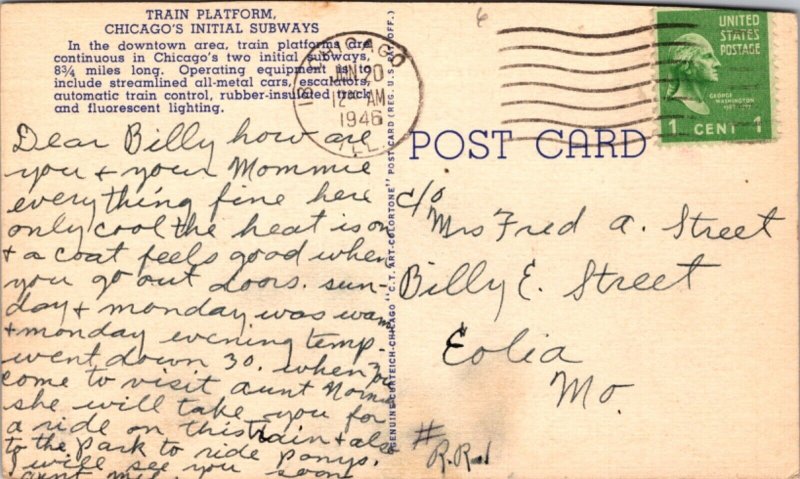 TRAIN PLATFORM,
CHICAGO'S INITIAL SUBWAYS
In the downtown area, train platforms are
continuous in Chicago's two initial subways,
8¾ miles long. Operating equipment is to
include streamlined all-metal cars, escalators,
automatic train control, rubber-insulated track
and fluorescent lighting.
Dear Billy how are
you + your Mommie
everything fine here
only cool the heat is on
+ a coat feels good when
you go out doors. sun-
day + monday was warm
+ monday evening temp.
went down 30. when you
come to visit aunt
she will take you for
a ride on this train + also
to the Park to ride Ponys.
I will see you soon
aunt
CHICAGO
12 AM
1946
ILL.
GENUINE CURTEICH-CHICAGO "C.T. ART-COLORTONE" POST CARD (REG. U.S. PAT. OFF.)
6
POST CARD
UNITED
STATES
POSTAGE
GEORGE
WASHINGTON
1 CENT 1
c/o
Mrs Fred A. Street
Billy E. Street
Eolia
Mo.
#
R.R.1